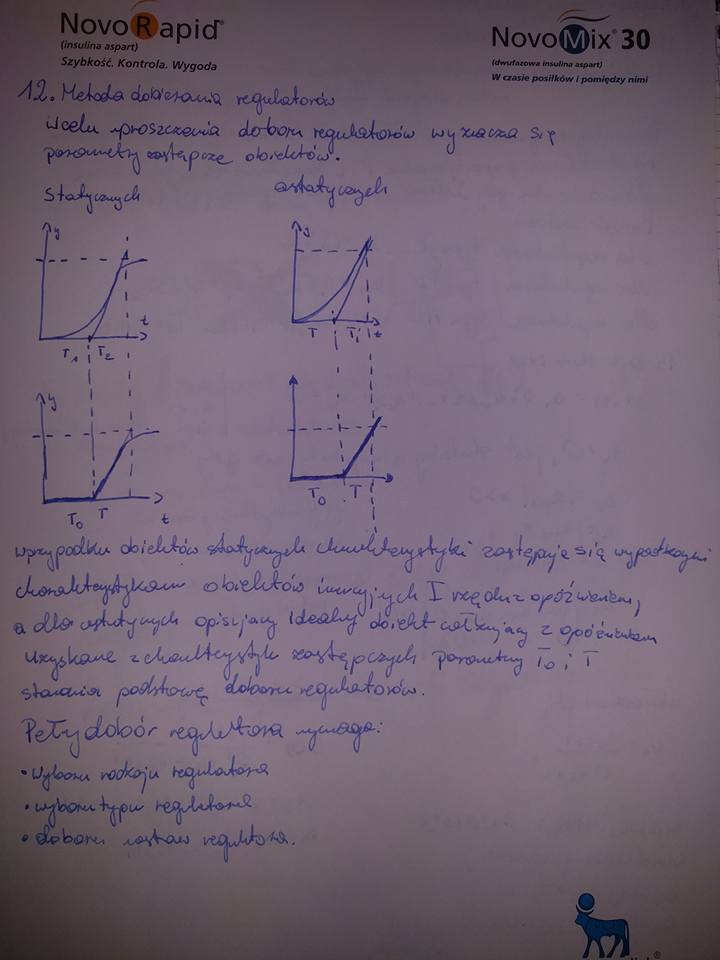 NovoRapid®
(insulina aspart)
Szybkość. Kontrola. Wygoda
NovoMix® 30
(dwufazowa insulina aspart)
W czasie posiłków i pomiędzy nimi
12. Metoda dobierania regulatorów
W celu uproszczenia doboru regulatorów wyznacza się
parametry zastępcze obiektów.
statycznych
astatycznych
y
t
T1 T2
y
t
T Ti
y
t
T0 T
T0 T
w przypadku obiektów statycznych charakterystyki zastępuje się wypadkowymi
charakterystykami obiektów inercyjnych I rzędu z opóźnieniem,
a dla astatycznych opisujący idealny obiekt całkujący z opóźnieniem
Uzyskane z charakterystyk zastępczych parametry T0 i T
stanowią podstawę doboru regulatorów.
Pełny dobór regulatora wymaga:
• wyboru rodzaju regulatora
• wyboru typu regulatora
• doboru nastaw regulatora.